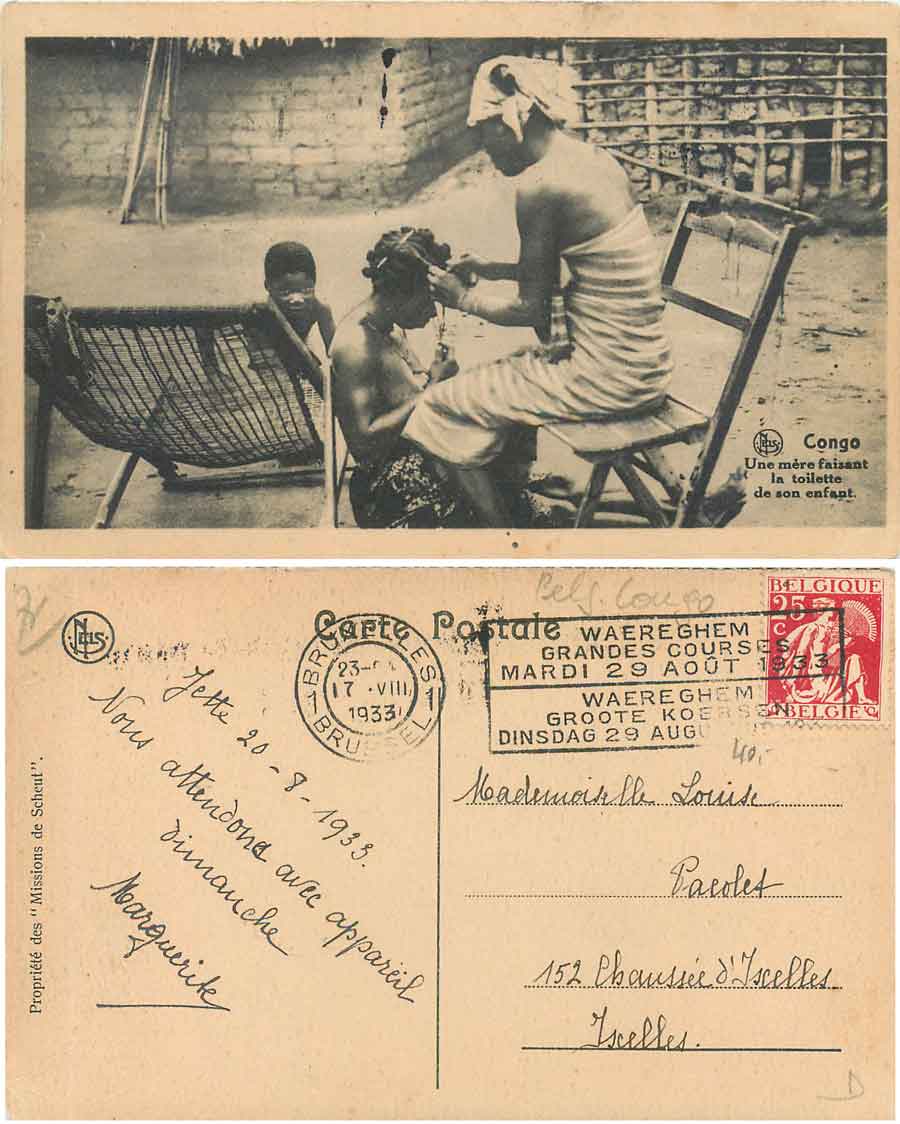 NELS Congo
Une mère faisant
la toilette
de son enfant.
Belg. Congo
NELS
Carte Postale
BELGIQUE
25
C
BELGIE
BRUXELLES 1
23-
17 VIII
1933
1 BRUSSEL
WAEREGHEM
GRANDES COURSES
MARDI 29 AOÛT 1933
WAEREGHEM
GROOTE KOERSEN
DINSDAG 29 AUGU
40,-
Jette 20-8-1933.
Nous
attendons avec appareil
dimanche
Marguerite
Mademoiselle Louise
Pacolet
152 Chaussée d'Ixelles
Ixelles.
Propriété des "Missions de Scheut".
D